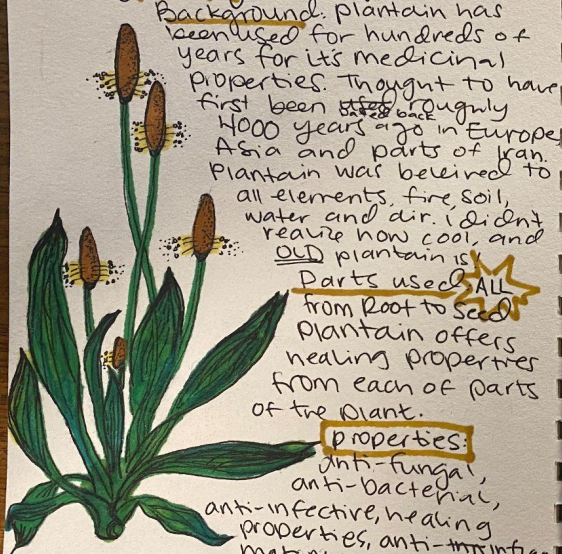 Background: plantain has
been used for hundreds of
years for it's medicinal
properties. Thought to have
first been dated back roughly
4000 years ago in Europe,
Asia and parts of Iran.
Plantain was beleived to
all elements, fire, soil,
water and air. I didnt
realize how cool, and
OLD plantain is!
Parts used ALL
from Root to Seed
Plantain offers
healing properties
from each of parts
of the plant.
properties:
anti-fungal,
anti-bacterial,
anti-infective, healing
properties, anti-